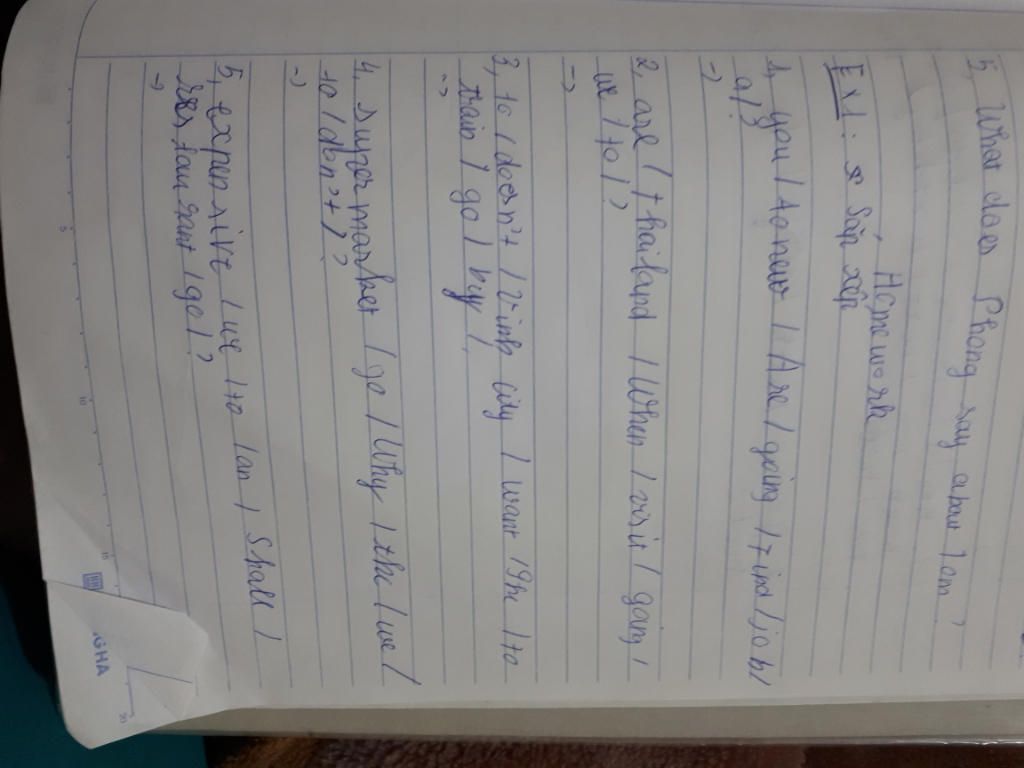 5, What does Phong say about Tom?
Homework
Ex1: Sắp xếp
1, you / / Are / going / find / job /
a / ?
→
2, are / thailand / When / visit / going /
we / to / ?
→
3, to / doesn't / vinh city / want / She / to
train / go / by /
→
4, supermarket / go / Why / the / we /
to / don't / ?
→
5, expensive / we / to / an / Shall /
restaurant / go / ?
→
GHA
5
10
15
20